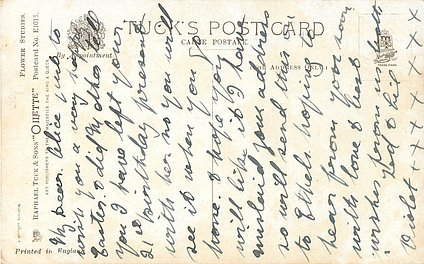 TUCK'S POST CARD
CARTE POSTALE
By Appointment
(FOR ADDRESS ONLY.)
FLOWER STUDIES.
Postcard No. E1013.
RAPHAEL TUCK & SONS' "OILETTE"
ART PUBLISHERS TO THEIR MAJESTIES THE KING & QUEEN
Printed in England
My dear Alice just to
wish you a very happy
Easter. I did Mrs
you I have left your
21st Birthday present
with her so you will
see it when you go
home. I hope you
will like it I have
mislaid your address
so will send this
to Ethel hoping to
hear from you soon
with love & best
wishes from us both
Ted & Lil
Violet + x x x x